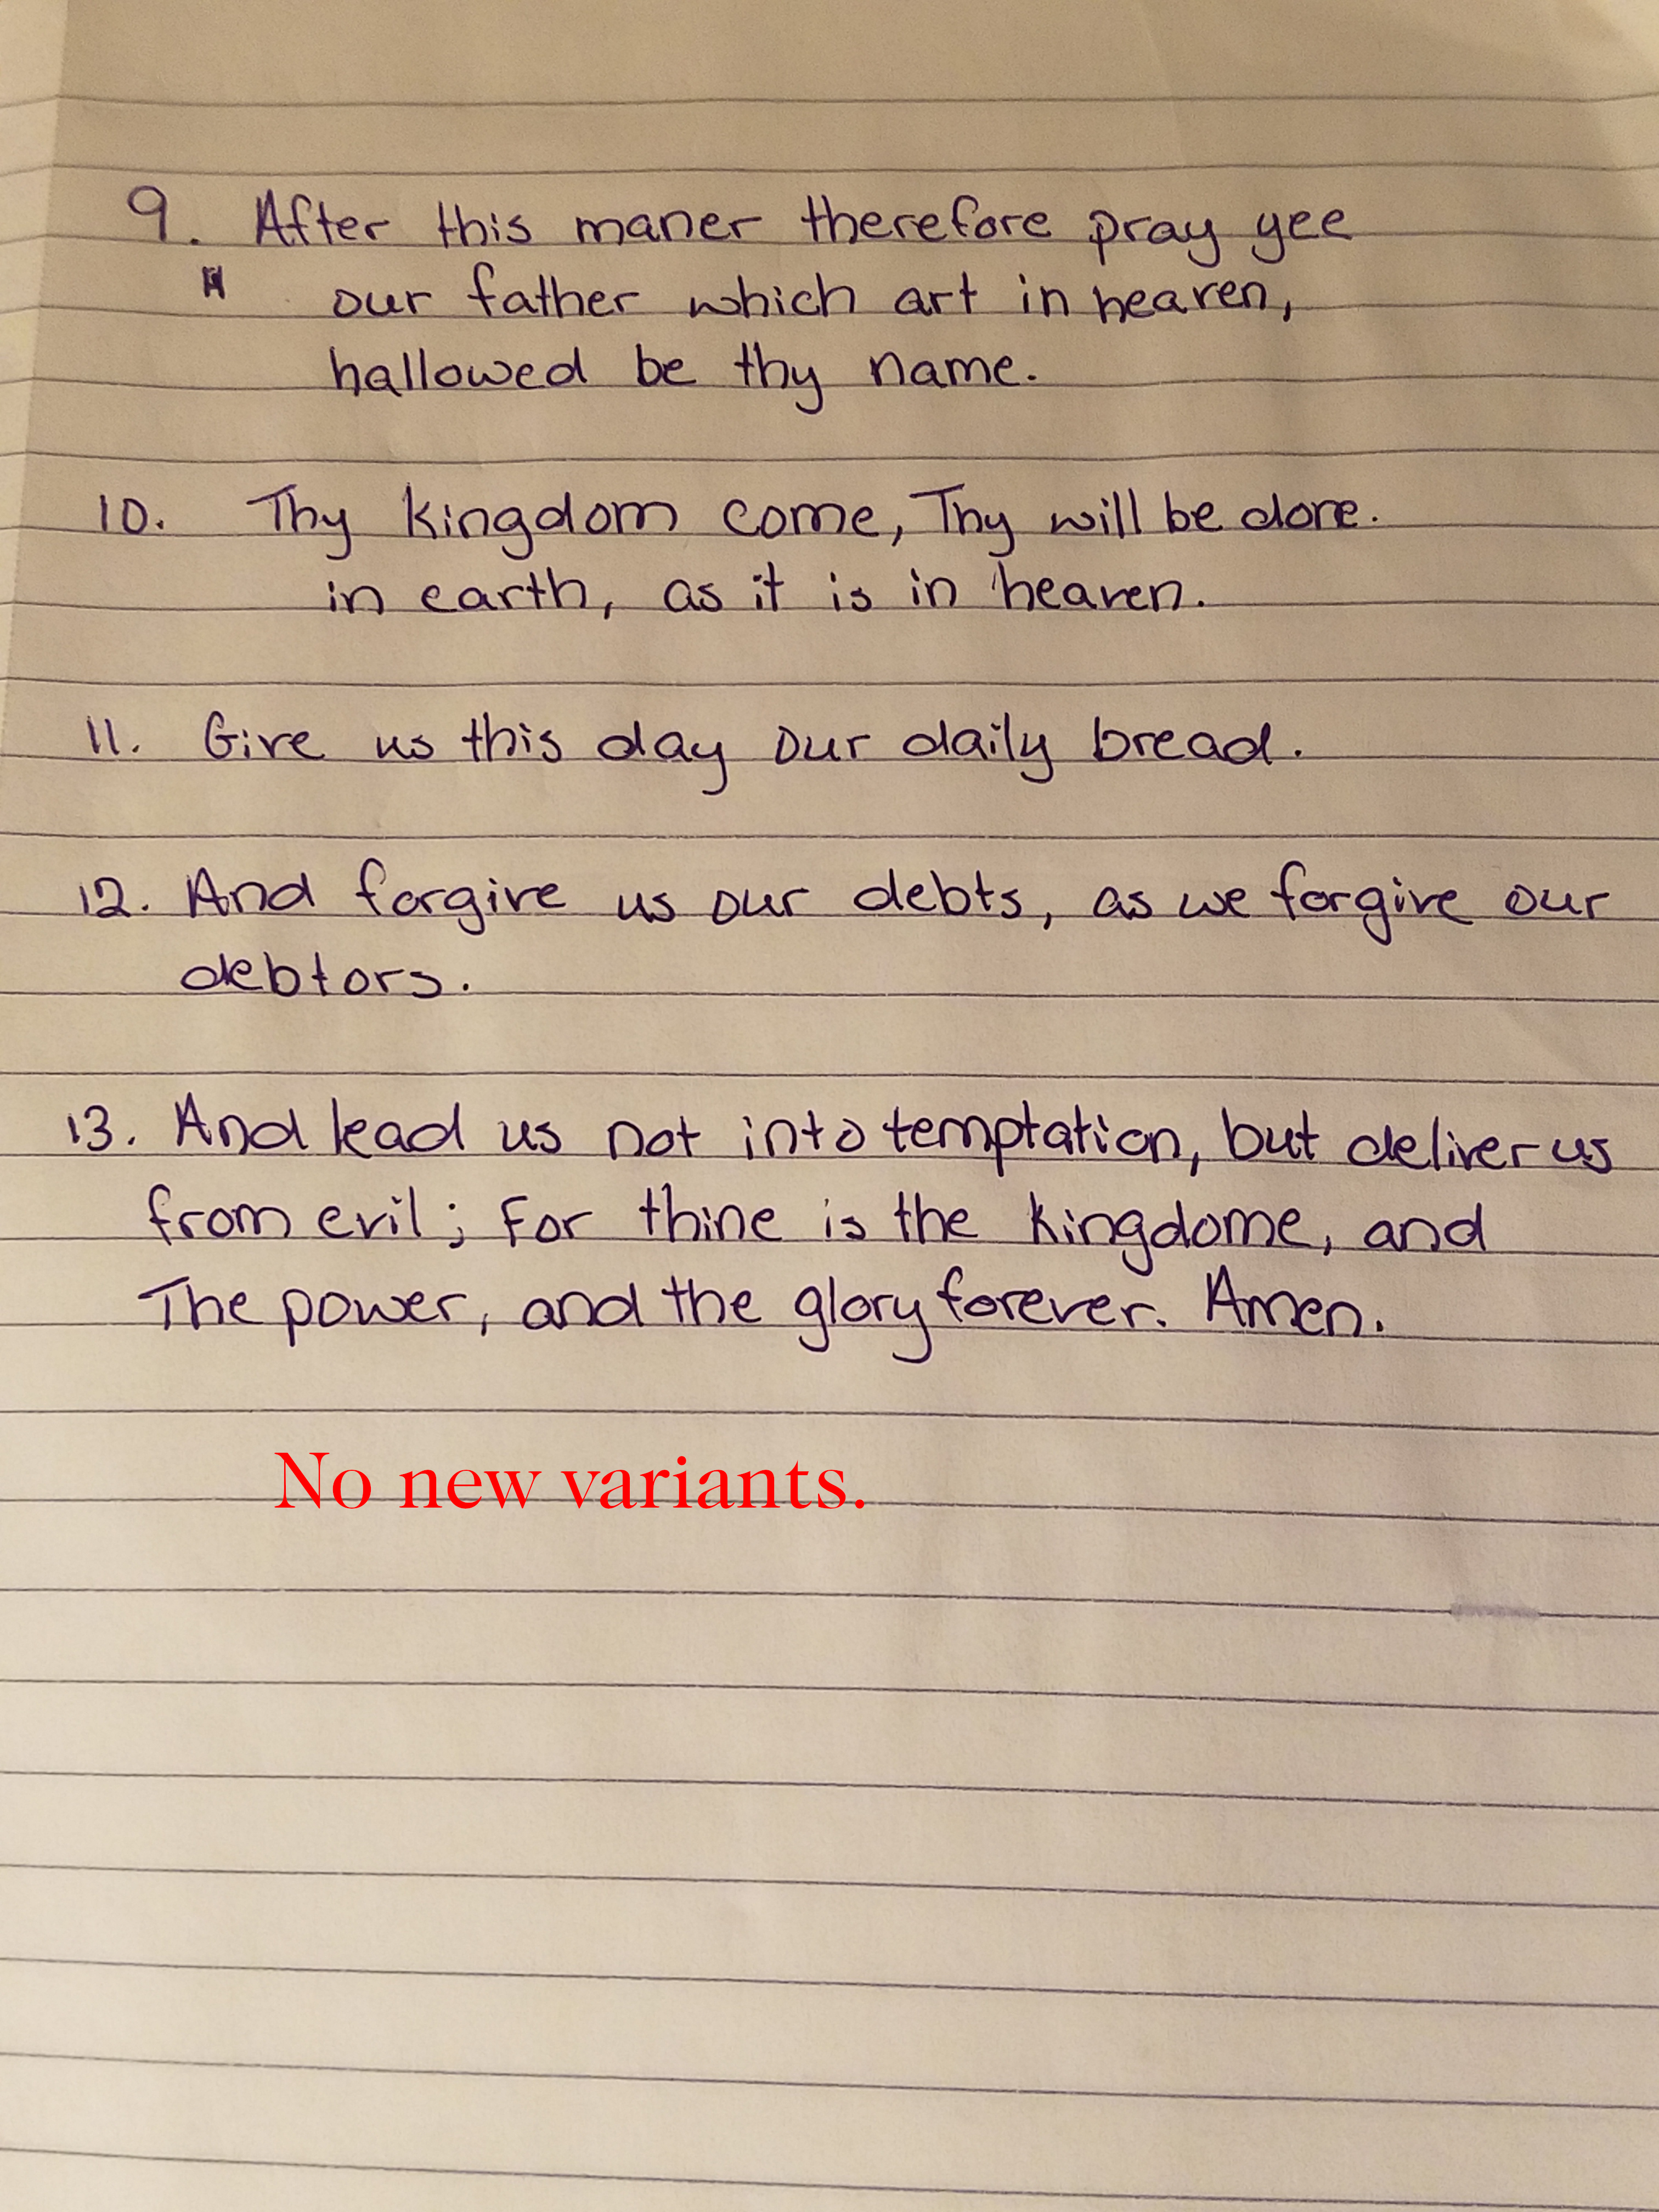 9. After this maner therefore pray yee
our father which art in heaven,
hallowed be thy name.
10. Thy kingdom come, Thy will be done.
in earth, as it is in heaven.
11. Give us this day our daily bread.
12. And forgive us our debts, as we forgive our
debtors.
13. And lead us not into temptation, but deliver us
from evil; For thine is the kingdome, and
The power, and the glory forever. Amen.
No new variants.